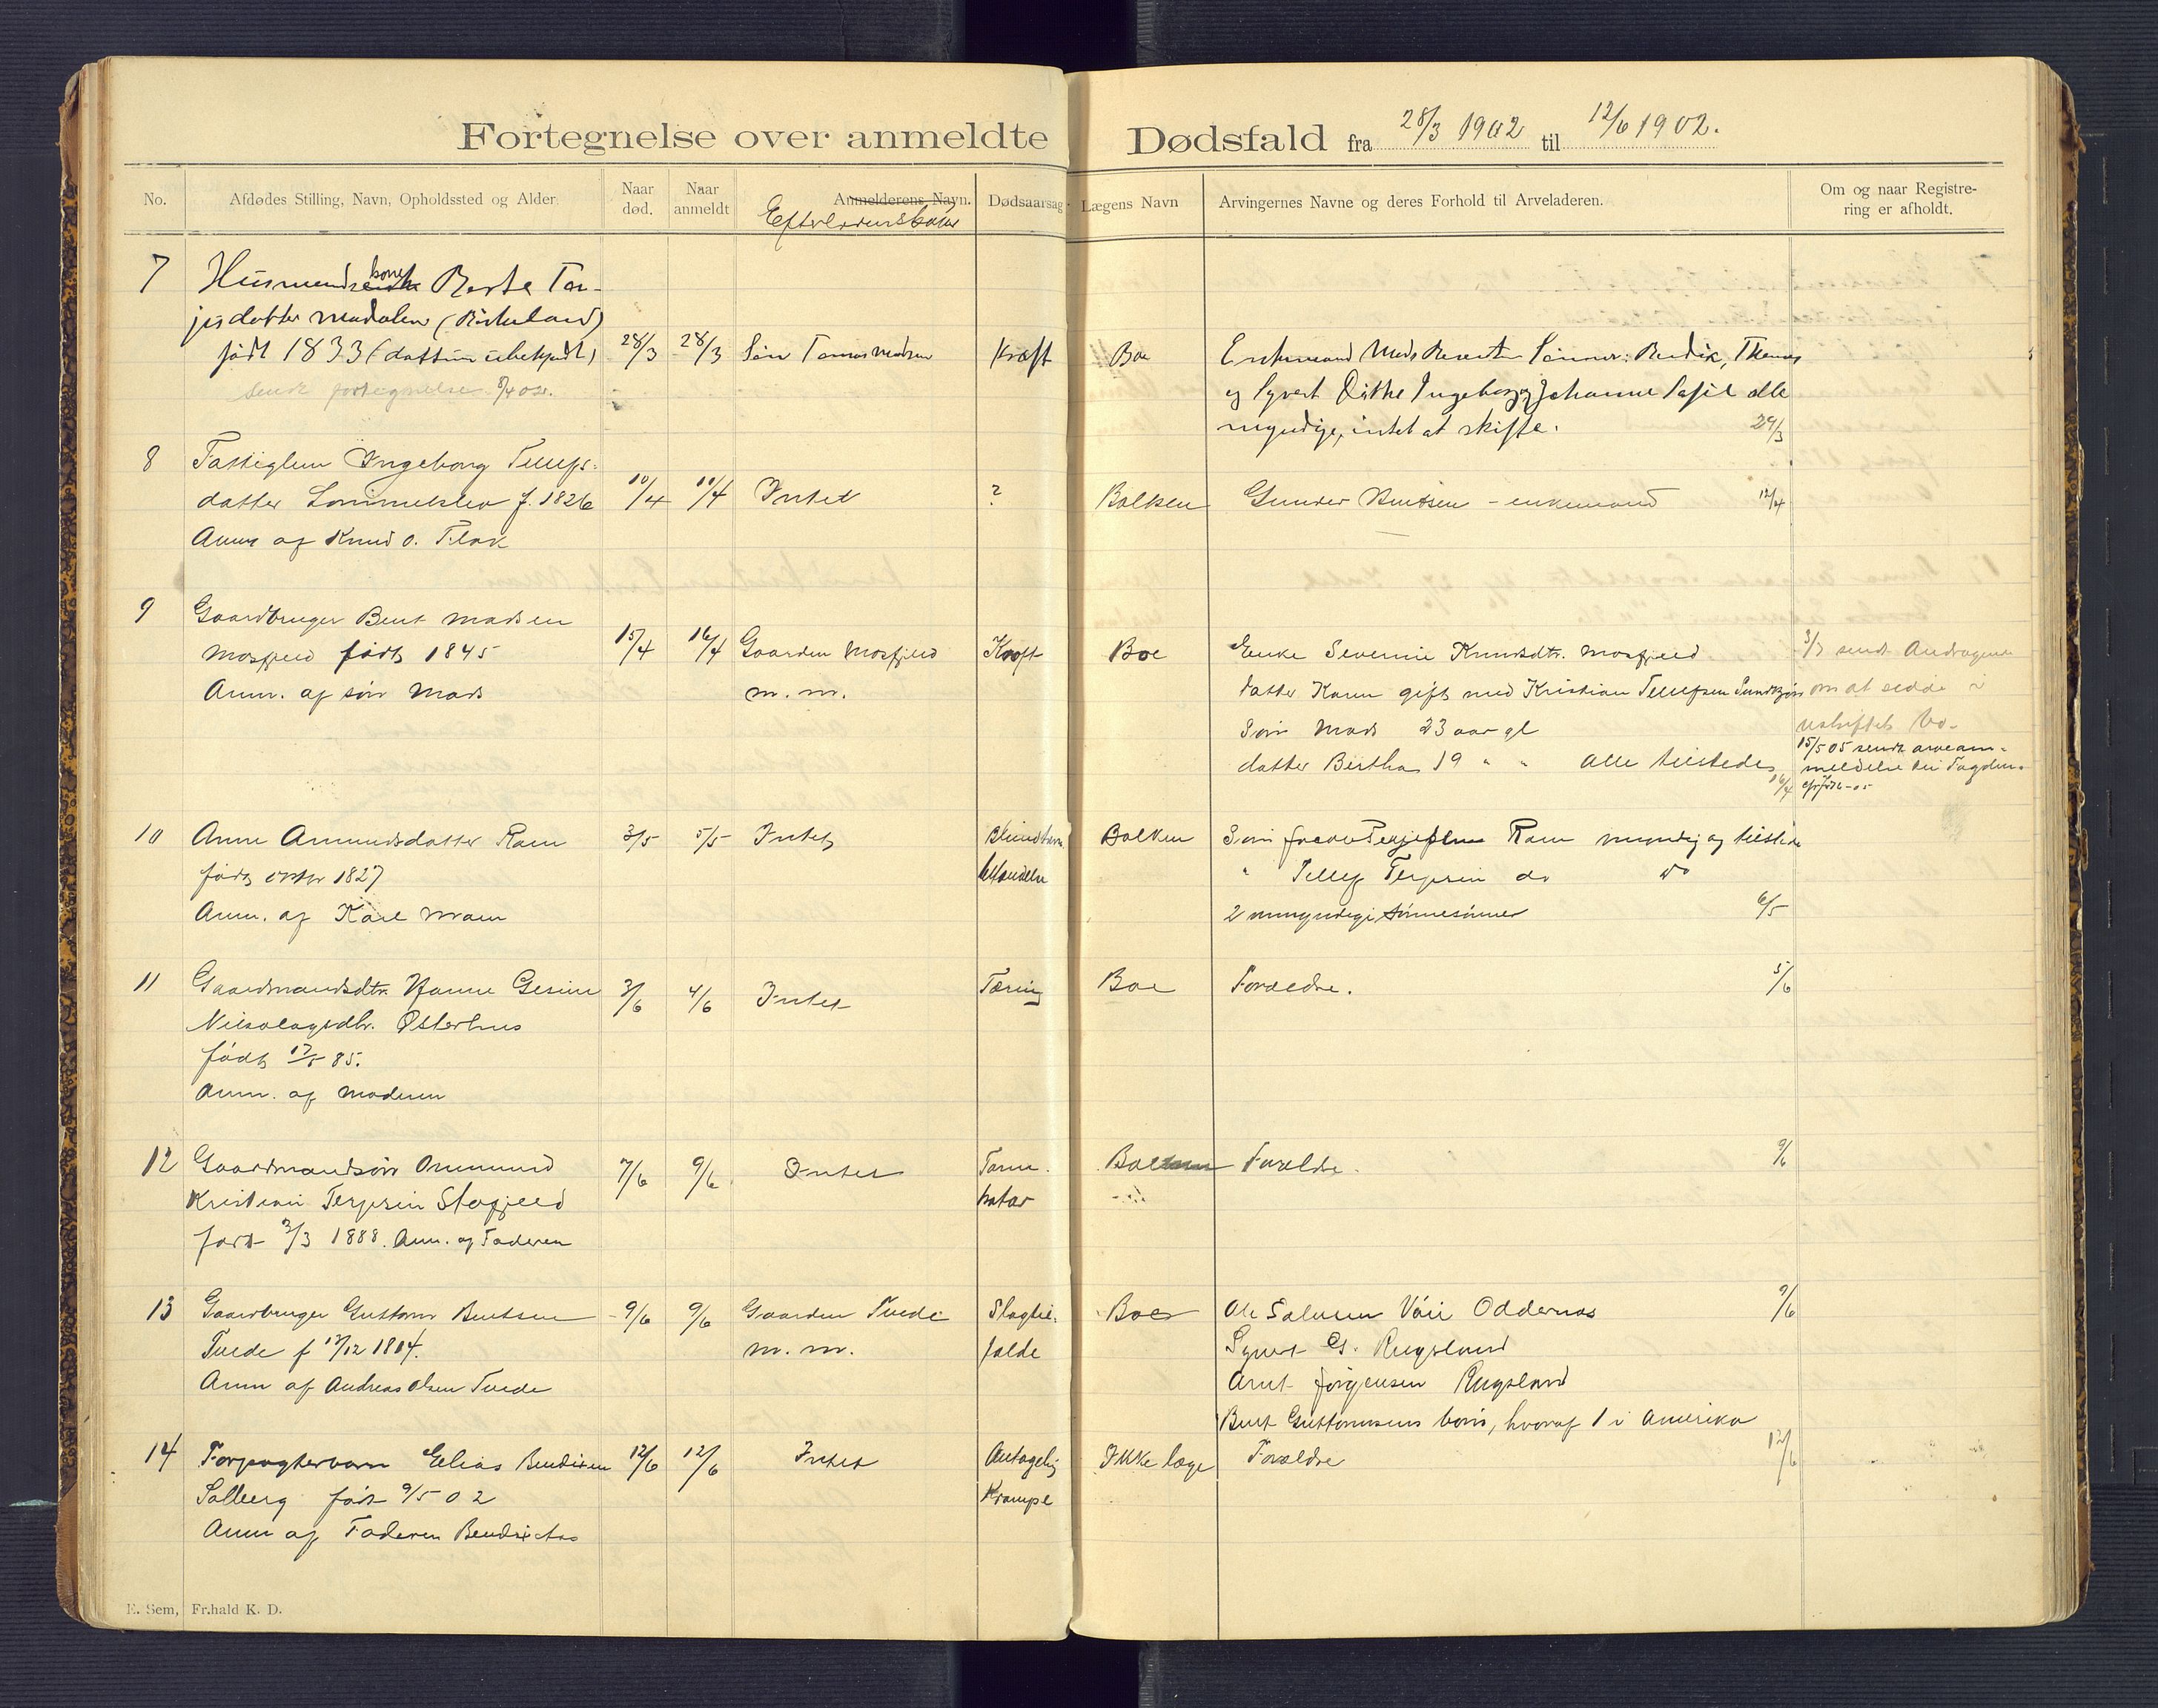 Fortegnelse over anmeldte Dødsfald fra 28/3 1902 til 12/6 1902.
No. Afdødes Stilling, Navn, Opholdssted og Alder. Naar død. Naar anmeldt Anmelderens Navn. Dødsaarsag Lægens Navn Arvingernes Navne og deres Forhold til Arveladeren. Om og naar Registrering er afholdt.
7 Husmands kone Berte Tar-
jesdatter (Birkeland)
født 1833 (datum ubekjendt) 28/3 28/3 Søn Tomas Madsen Kræft Boe Enkemand Mads Sønner: Bendix, Thomas
sendt fortegnelse 8/4 02.
og Syvert Ingeborg og Johanne alle
myndige, intet at skifte. 29/3
8 Fattiglem Ingeborg Tellefs-
datter f. 1826 10/4 10/4 Intet ? Balken Gunder Bentsen - enkemand 12/4
Anm af Knud O. Flak
9 Gaardbruger Bent Madsen
Mosfjeld født 1845 15/4 16/4 Gaarden Mosfjeld Kræft Boe Enke Severine Knudsdtr. Mosfjeld
Anm. af søn Mads m. m. datter Karen gift med Kristian Tellefsen
Søn Mads 23 aar gl
datter Bertha 19 " " Alle tilstede 16/4
3/7 sendt Andragende
om at sidde i
uskiftet Bo.
15/5 05 sendt arvean-
meldelse
10 Anne Aamundsdatter Ram 3/5 5/5 Intet Blindtarm Balken Søn Ram myndig og tilstede
født 1827 betændelse " Tellef Terjesen do do
Anm. af Karl Moen 2 umyndige sønnesønner 6/5
11 Gaardmandsdtr. Hanne Gesine 3/6 4/6 Intet Tæring Boe Forældre. 5/6
Nicolaysdtr. Østerhus
født 17/5 85.
Anm. af Moderen
12 Gaardmandsøn Ommund 7/6 9/6 Intet Tarm- Forældre. 9/6
Kristian Terjesen Stafjeld katar
født 2/3 1888. Anm. af Faderen
13 Gaardbruger Guttorm Bentsen 9/6 9/6 Gaarden Tvede Slagtil- Boe Ole Salvesen Oddernes 9/6
Tvede f 13/12 1814. m. m. fælde Syvert G. Rugsland
Anm af Andreas Olsen Tvede Arnt Jørgensen Rugsland
Bent Guttormsens børn, hvoraf 1 i Amerika
14 Forpagterbarn Elias Bendixen 12/6 12/6 Intet Antagelig Ikke læge Forældre 12/6
Solberg født 9/5 02 Krampe
Anm af Faderen
E. Sem, Fr.hald K. D.